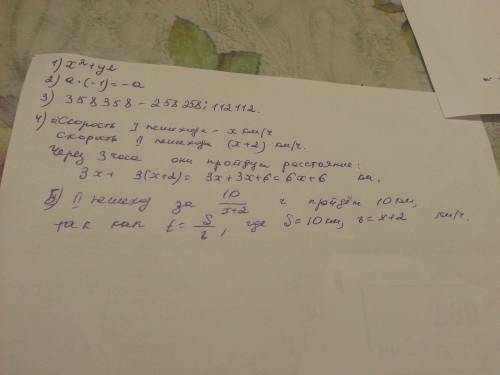 1) x² + y2
2) a · (-1) = -a
3) 358358 - 258258 : 112112.
4) а Скорость I пешехода - x км/ч
Скорость II пешехода (x+2) км/ч.
Через 3 часа они пройдут расстояние:
3x + 3(x+2) = 3x+3x+6 = 6x+6 км.
Б) II пешеход за 10/x+2 ч пройдёт 10 км,
так как t = S/v, где S = 10 км, v = x+2 км/ч.